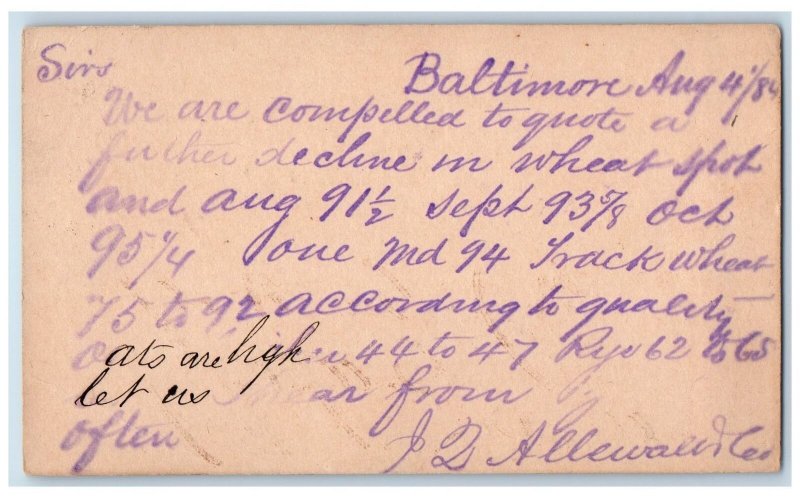 Sirs
Baltimore Aug 4"/84
We are compelled to quote a
further decline in wheat spot
and aug 91½ Sept 93⅞ Oct
95¼ one Md 94 Track wheat
75 to 92 according to quality
Oats are high 44 to 47 Rye 62 to 65
let us hear from
often
J D Allewalt & Co